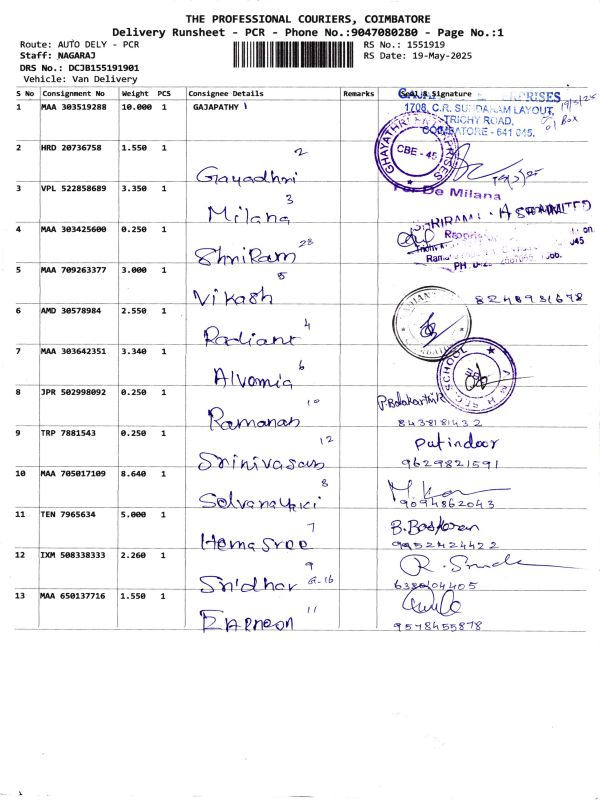 THE PROFESSIONAL COURIERS, COIMBATORE
Delivery Runsheet - PCR - Phone No.:9047080280 - Page No.:1
Route: AUTO DELY - PCR
RS No.: 1551919
Staff: NAGARAJ
RS Date: 19-May-2025
DRS No.: DCJB155191901
Vehicle: Van Delivery
S No Consignment No Weight PCS Consignee Details Remarks Seal & Signature
1 MAA 303519288 10.000 1 GAJAPATHY 1
ENTERPRISES
1708, C.R. SUNDARAM LAYOUT,
TRICHY ROAD,
COIMBATORE - 641 045.
19/5/25
01 Box
2 HRD 20736758 1.550 1 Gayadhri 2
CBE - 45
3 VPL 522858689 3.350 1 Milana 3
For De Milana
4 MAA 303425600 0.250 1 ShriRam 28
SHRIRAM
5 MAA 709263377 3.000 1 Vikash 5
8248931678
6 AMD 30578984 2.550 1 Radiant 4
7 MAA 303642351 3.340 1 Alvomia 6
SCHOOL
8 JPR 502998092 0.250 1 Ramanan 10
P.Balakarthik
8438181432
9 TRP 7881543 0.250 1 Srinivasan 12
9629821591
10 MAA 705017109 8.640 1 Selvanayaki 8
9094862043
11 TEN 7965634 5.000 1 HemaSree 7
B.Baskaran
9952424422
12 IXM 508338333 2.260 1 Sridhar 9
R.
13 MAA 650137716 1.550 1 11
9578455878